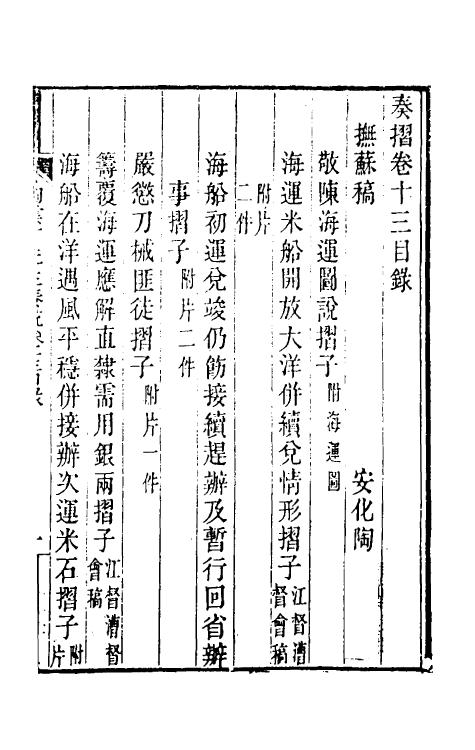 奏摺卷十三目錄
撫蘇稿 安化陶
敬陳海運圖說摺子附海運圖
海運米船開放大洋併續兌情形摺子江督漕督會稿
附片二件
海船初運兌竣仍飭接續趕辦及暫行回省辦
事摺子附片二件
嚴懲刀械匪徒摺子附片一件
籌覆海運應解直隸需用銀兩摺子江督漕督會稿
海船在洋遇風平穩併接辦次運米石摺子附片